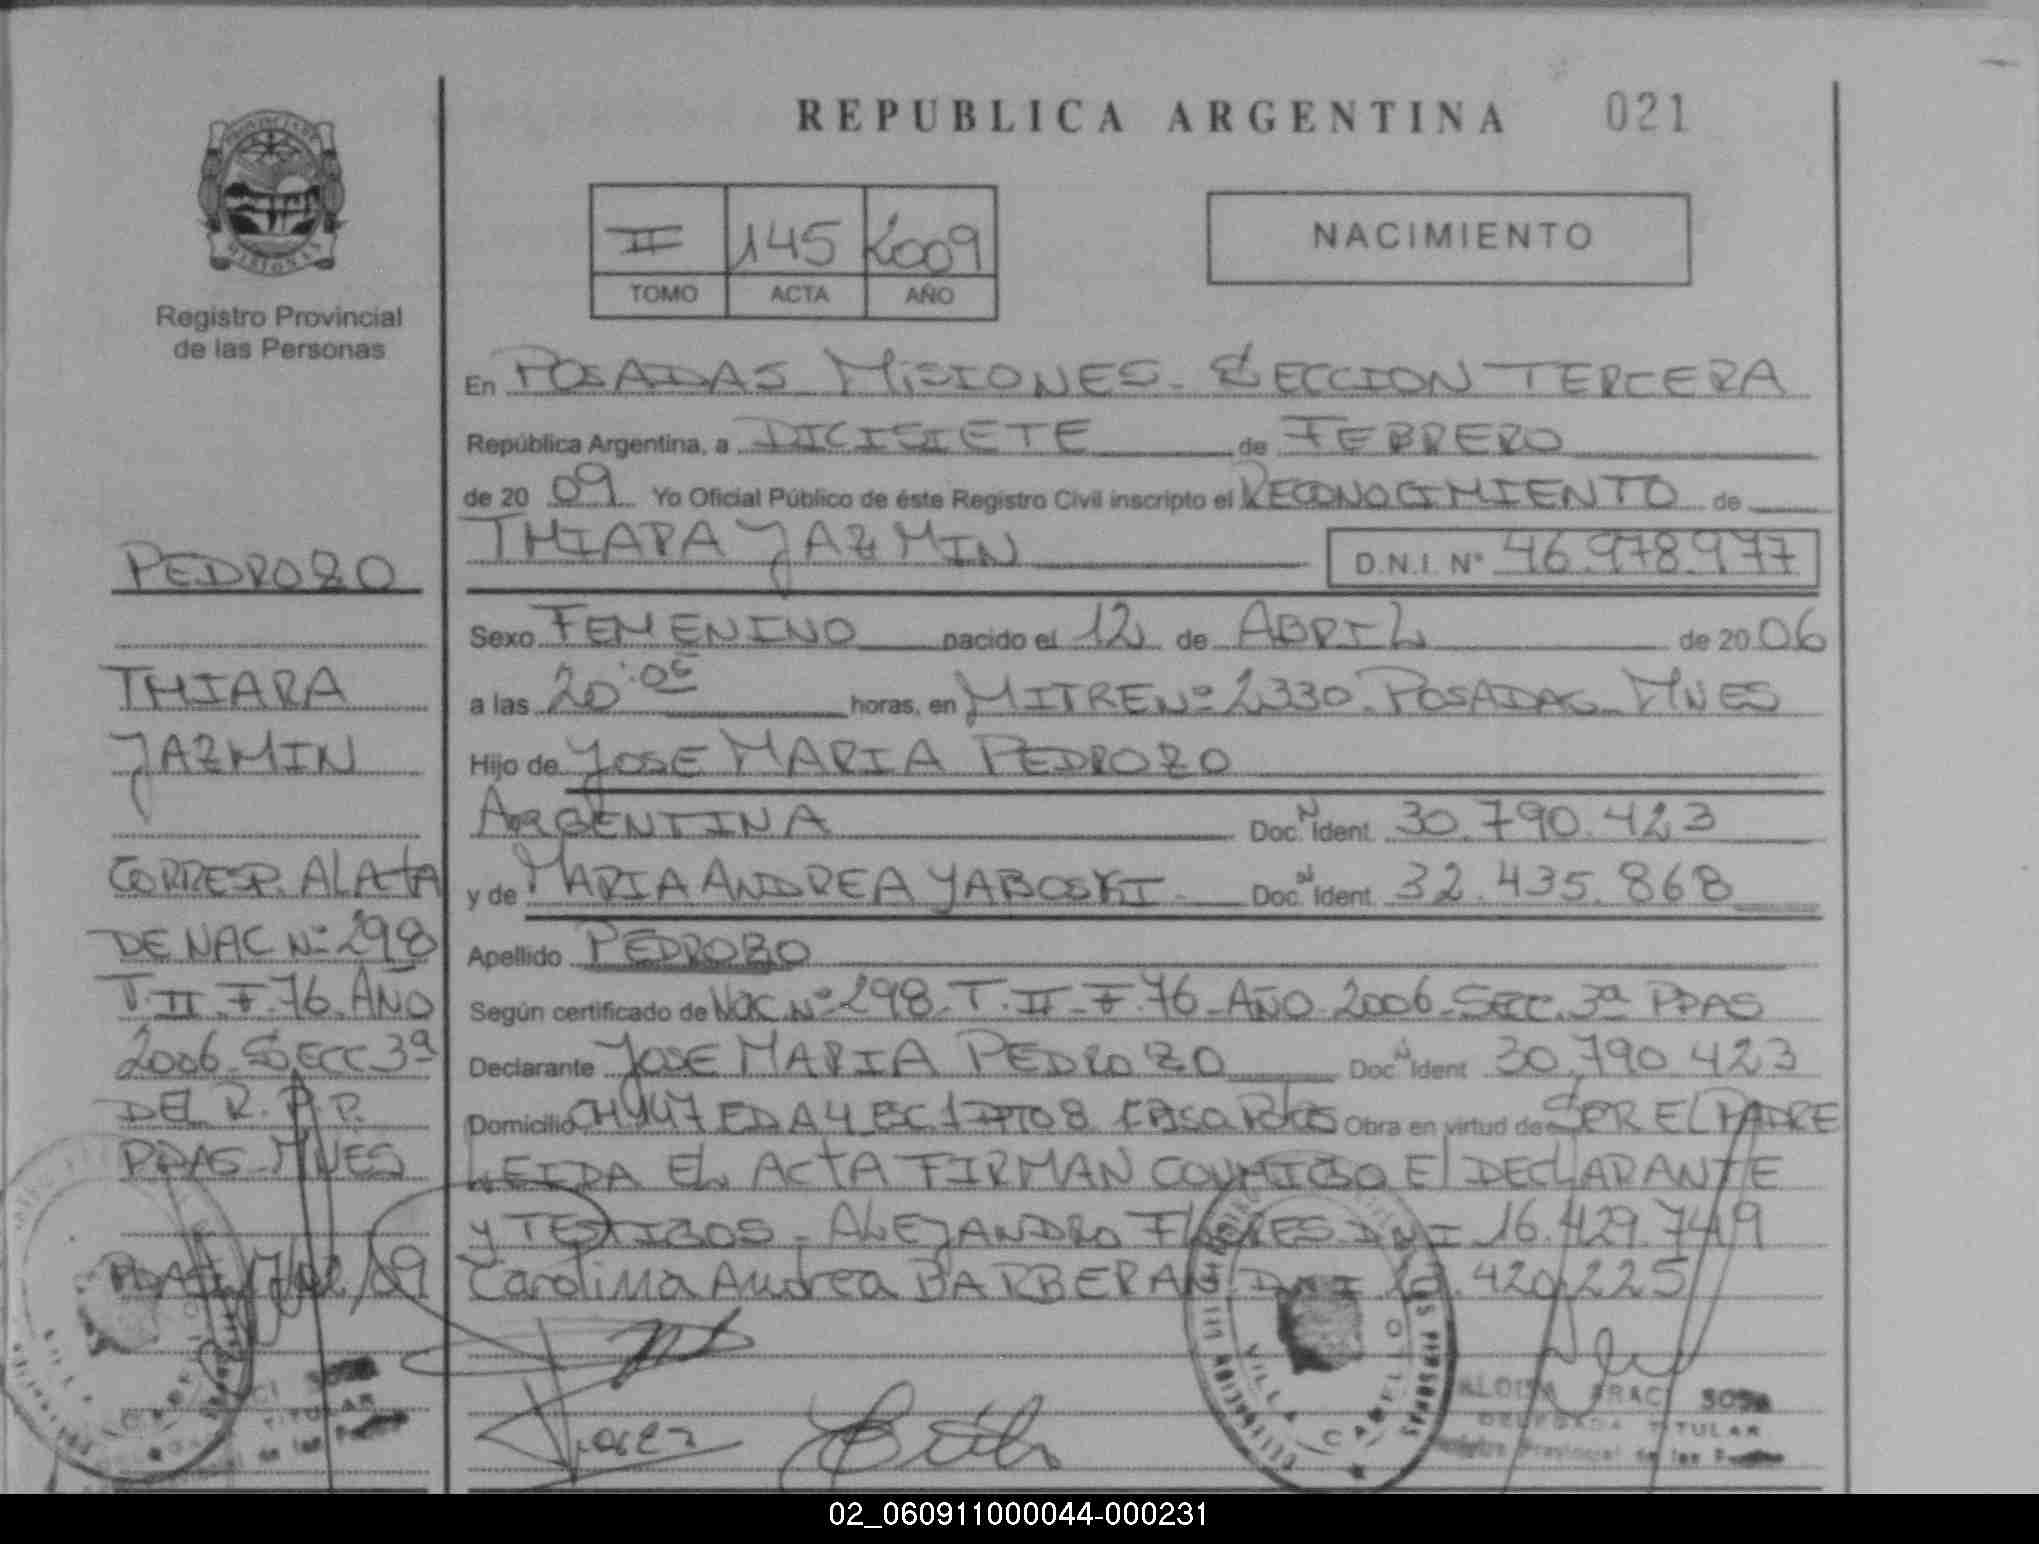 REPUBLICA ARGENTINA 021
II 145 2009
TOMO ACTA AÑO
NACIMIENTO
Registro Provincial
de las Personas
PEDROZO
THIARA
JAZMIN
CORRESP. AL ACTA
DE NAC Nº 298
T. II - F. 76 - AÑO
2006 - SECC 3ª
DEL R. P. P.
PDAS - MNES
PDAS 17/02/09
En POSADAS MISIONES - SECCION TERCERA
República Argentina, a DICISIETE de FEBRERO
de 20 09 Yo Oficial Público de éste Registro Civil inscripto el RECONOCIMIENTO de
THIARA JAZMIN D.N.I. Nº 46.978.977
Sexo FEMENINO nacido el 12 de ABRIL de 20 06
a las 20:05 horas, en MITRE Nº 2330 - POSADAS - MNES
Hijo de JOSE MARIA PEDROZO
ARGENTINA Doc. N Ident. 30.790.423
y de MARIA ANDREA YABOSKI Doc. N Ident. 32.435.868
Apellido PEDROZO
Según certificado de NAC. Nº 298 - T. II - F. 76 - AÑO 2006 - SECC. 3ª PDAS
Declarante JOSE MARIA PEDROZO Doc N Ident 30.790.423
Domicilio CH 147 ED A4 ESC 1 DPTO 8 Obra en virtud de SER EL PADRE
LEIDA EL ACTA FIRMAN CONMIGO El DEClARANTE
Y TESTIGOS - ALEJANDRO FLORES DNI 16.429.749
Carolina Andrea BARBERAN DNI 420.225
VILLA CABELLO
ARACI SOSA
DELEGADA TITULAR
Registro Provincial de las
TITULAR
de las
02_060911000044-000231